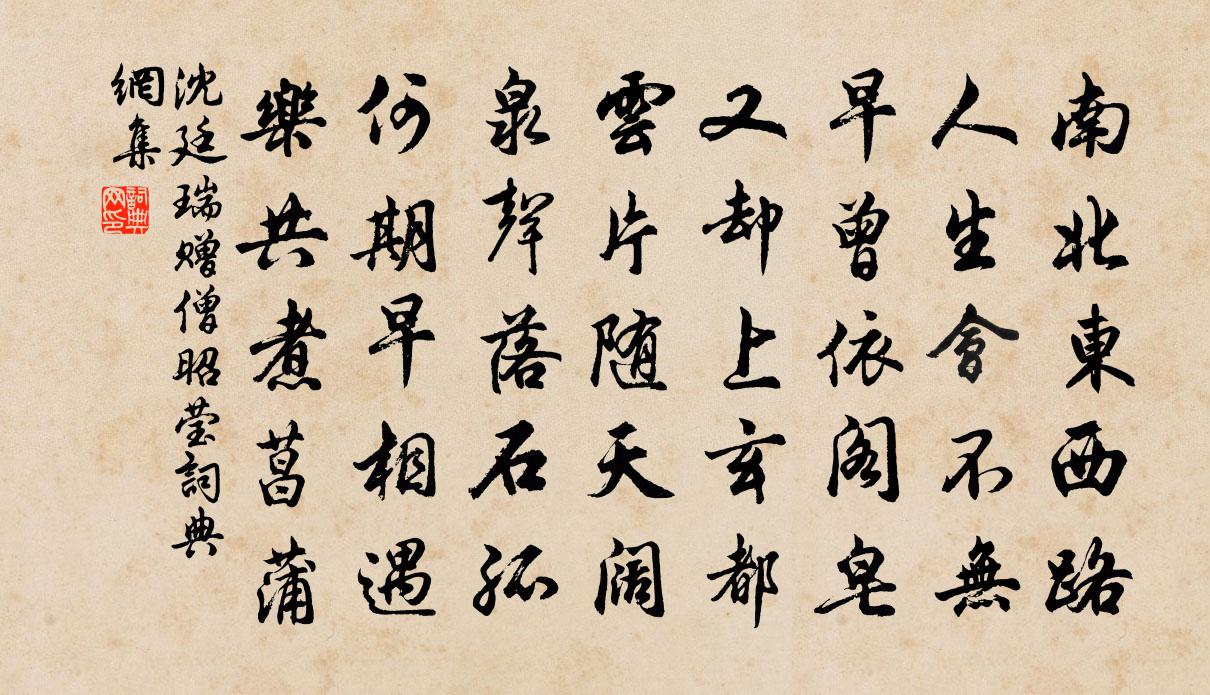 南北東西路
人生會不無
早曾依閣皂
又却上玄都
雲片随天闊
泉聲落石孤
何期早相遇
樂共煮菖蒲
沈廷瑞赠僧昭莹詞典
網集
詞典
网印